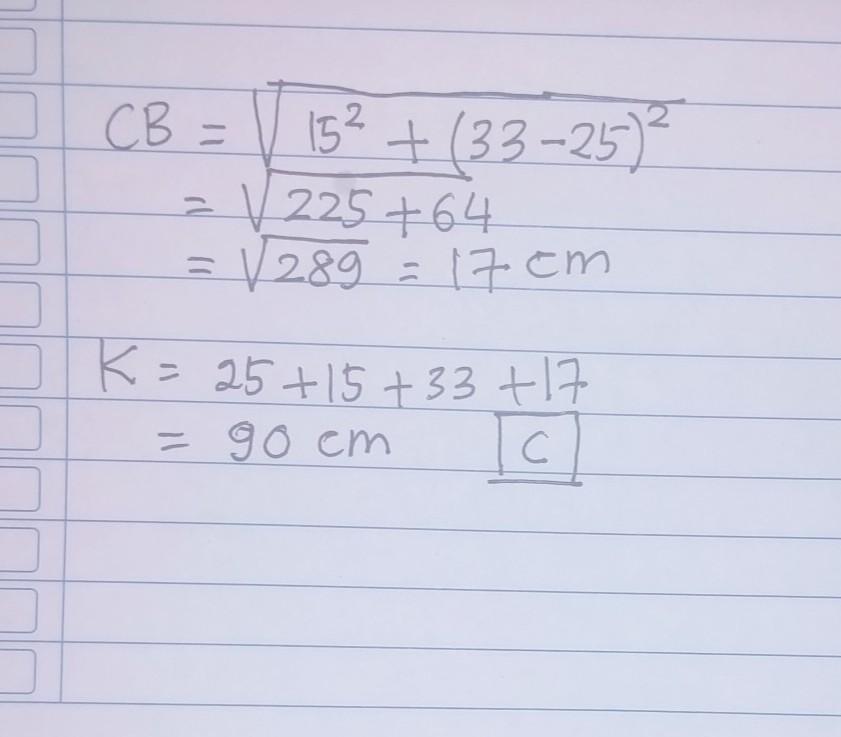 CB = √15² + (33-25)²
= √225 + 64
= √289 = 17 cm
K = 25+15+33+17
= 90 cm C